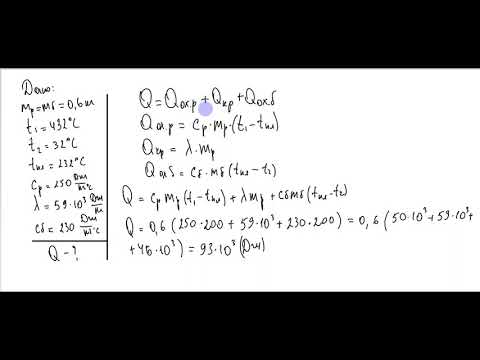 Дано:
mр = mб = 0,6 кг
t₁ = 432°C
t₂ = 32°C
tпл = 232°C
Cр = 250 Дж/кг·°C
λ = 59·10³ Дж/кг
Cб = 230 Дж/кг·°C
Q - ?
Q = Qох.р + Qкр + Qох.б
Qох.р = Cр·mр·(t₁ - tпл)
Qкр = λ·mр
Qох.б = Cб·mб(tпл - t₂)
Q = Cр mр(t₁ - tпл) + λ mр + Cб mб(tпл - t₂)
Q = 0,6 (250·200 + 59·10³ + 230·200) = 0,6 (50·10³ + 59·10³ +
+ 46·10³) = 93·10³ (Дж)